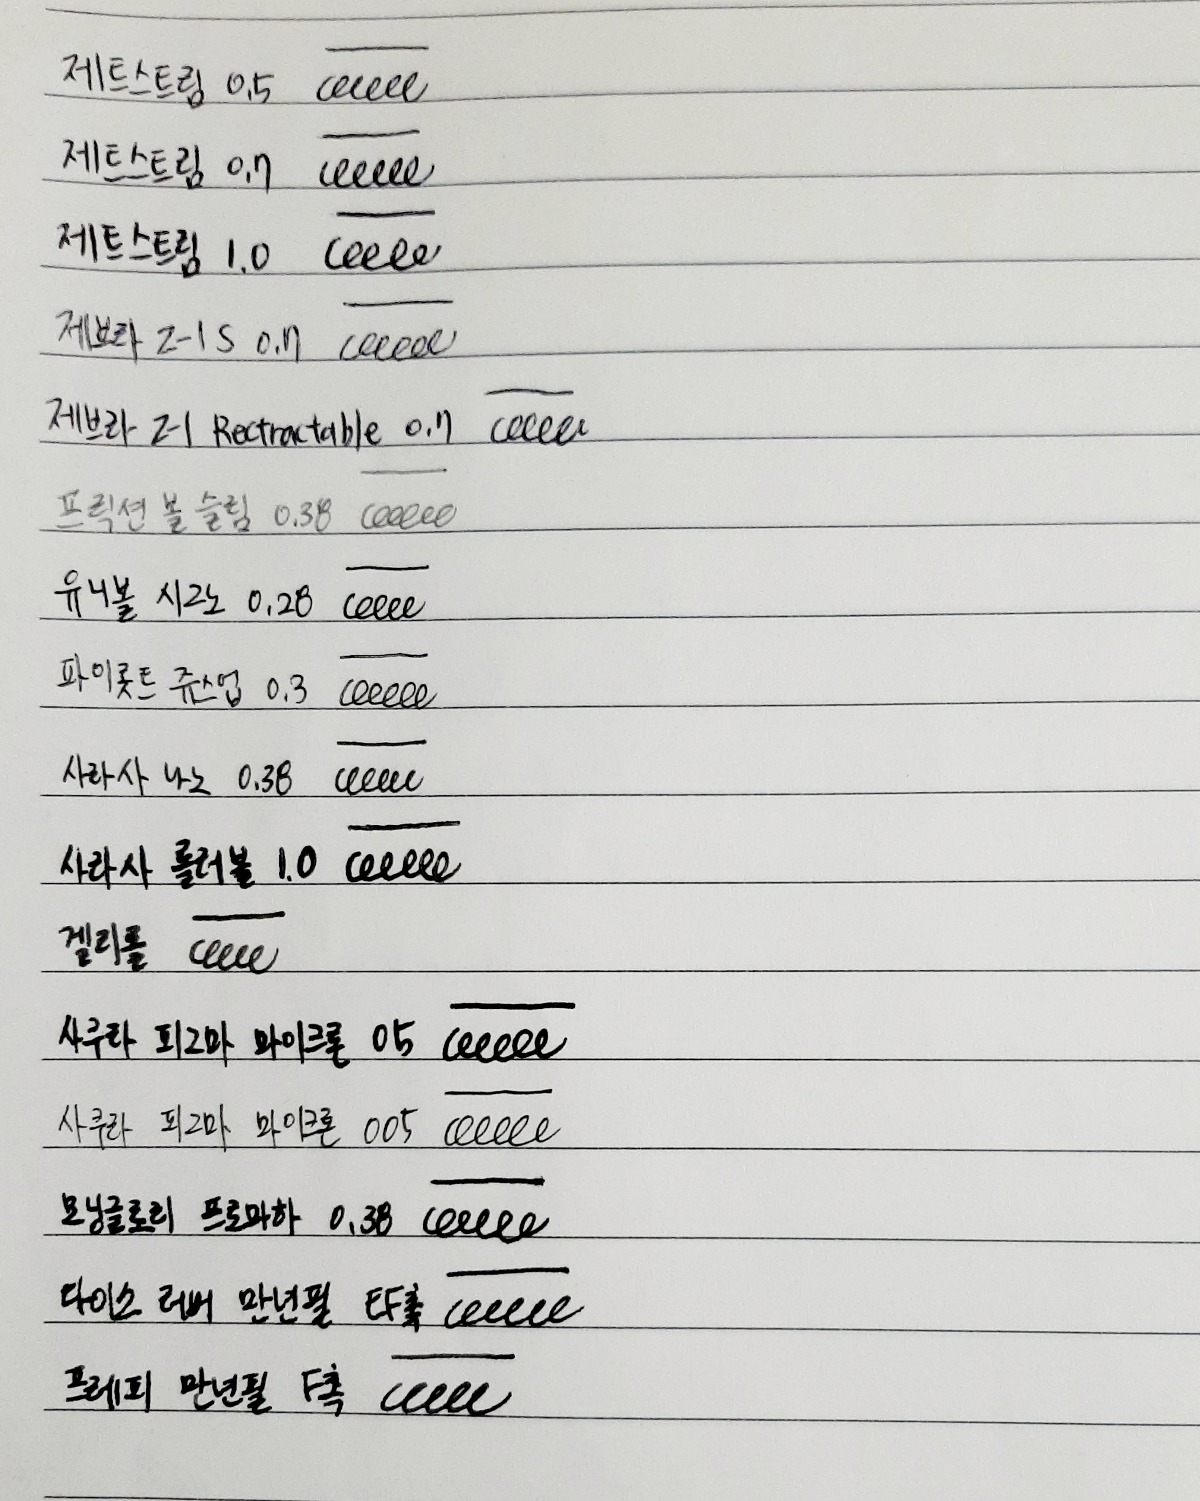 제트스트림 0.5
제트스트림 0.7
제트스트림 1.0
제브라 Z-1 S 0.7
제브라 Z-1 Rectractable 0.7
프릭션 볼 슬림 0.38
유니볼 시그노 0.28
파이롯트 쥬스업 0.3
사라사 나노 0.38
사라사 롤러볼 1.0
겔리롤
사쿠라 피그마 마이크론 05
사쿠라 피그마 마이크론 005
모닝글로리 프로마하 0.38
다이소 러버 만년필 EF촉
프레피 만년필 F촉